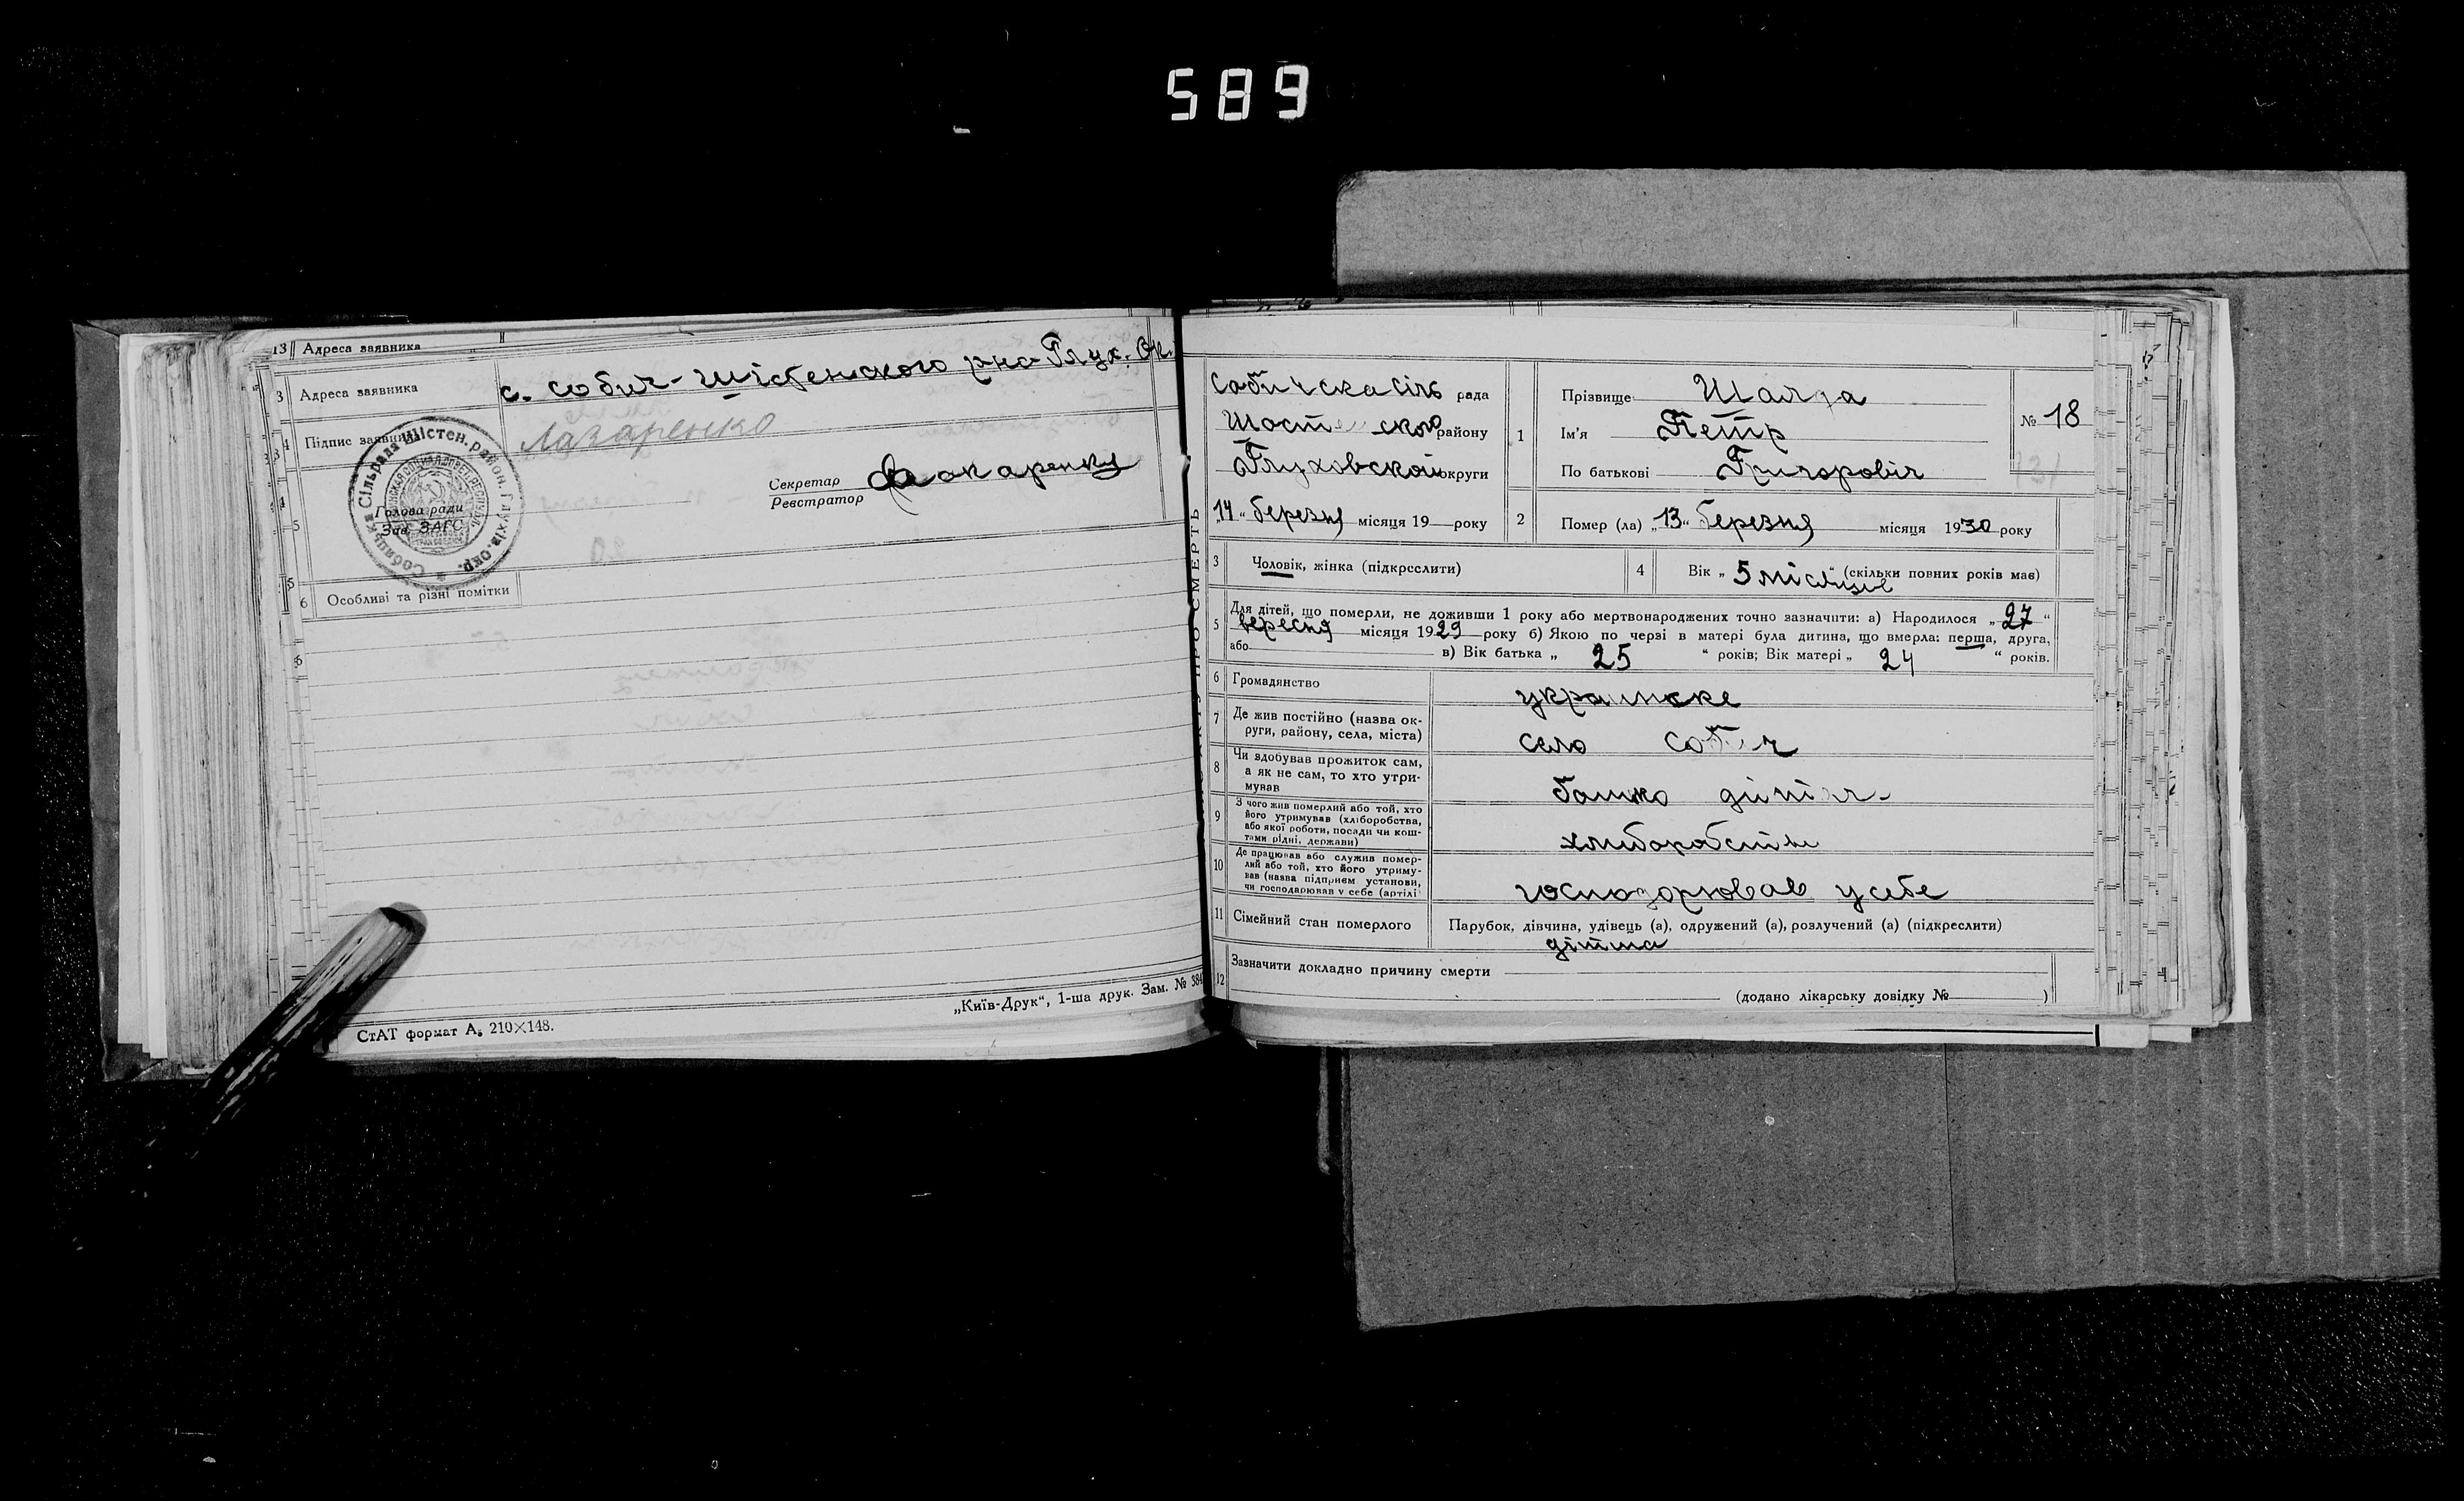 589
13 Адреса заявника
3 Адреса заявника с. Собич- Шістенского рна Глух. Окр.
4 Підпис заявника Лазаренко
Собицька Сільрада Шістен. район. Глухів. окр.
Голова ради
Зав. ЗАГС
Секретар
Реєстратор
5
6 Особливі та різні помітки
СтАТ формат А₅ 210×148.
„Київ-Друк“, 1-ша друк. Зам. № 384
ПРО СМЕРТЬ
Собичска сіль рада
Шостенского району
Глуховской округи
„14“ березня місяця 19 року
1 Прізвище Шалда
Ім'я Петр
По батькові Григоровіч
№ 18
131
2 Помер (ла) „13“ березня місяця 1930 року
3 Чоловік, жінка (підкреслити)
4 Вік „ 5 місяцив “ (скільки повних років мав)
5 Для дітей, що померли, не доживши 1 року або мертвонароджених точно зазначити: а) Народилося „27“
вересня місяця 1929 року б) Якою по черзі в матері була дитина, що вмерла: перша, друга,
або в) Вік батька „ 25 “ років; Вік матері „ 24 “ років.
6 Громадянство украинске
7 Де жив постійно (назва округи, району, села, міста) село Собич
8 Чи здобував прожиток сам,
а як не сам, то хто утри-
мував батько
9 З чого жив померлий або той, хто
його утримував (хліборобства,
або якої роботи, посади чи кош-
тами рідні, держави) хлиборобства
10 Де працював або служив помер-
лий або той, хто його утриму-
вав (назва підприєм установи,
чи господарював у себе (артілі) господорював у себе
11 Сімейний стан померлого Парубок, дівчина, удівець (а), одружений (а), розлучений (а) (підкреслити)
дітина
12 Зазначити докладно причину смерти
(додано лікарську довідку № )